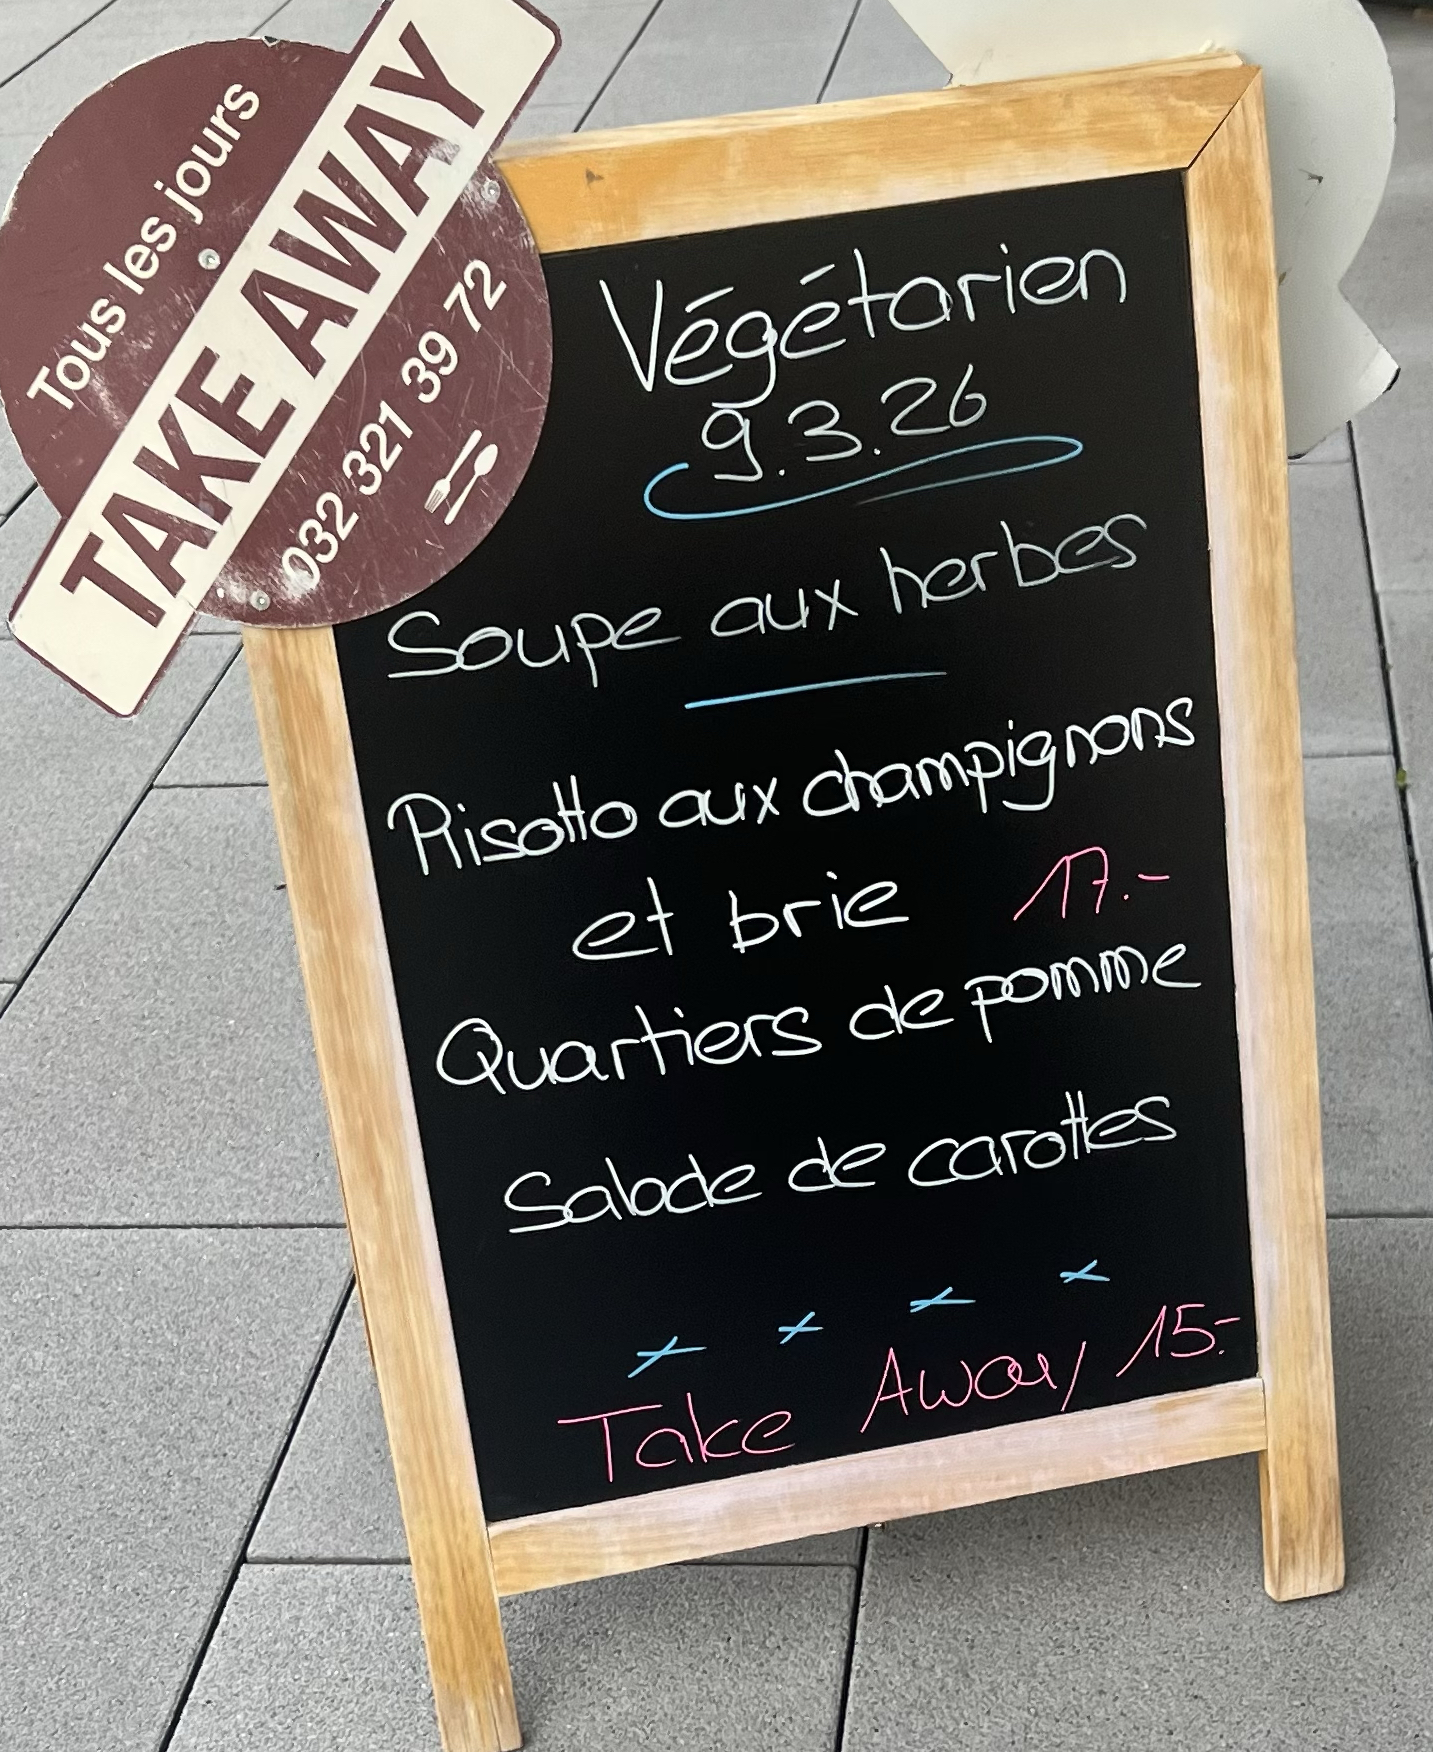 Tous les jours
TAKE AWAY
032 321 39 72
Végétarien
9.3.26
Soupe aux herbes
Risotto aux champignons
et brie 17.-
Quartiers de pomme
Salade de carottes
Take Away 15.-